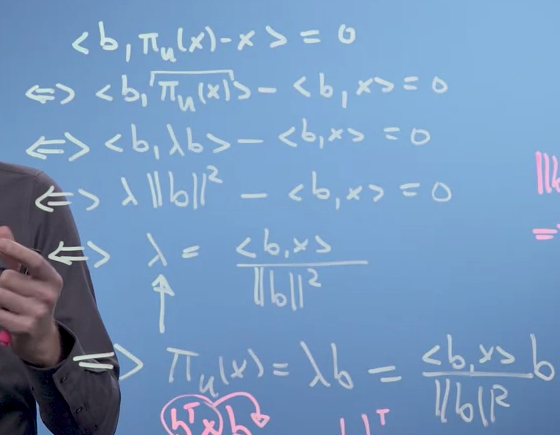 < b, π_u(x) - x > = 0
⇔ < b, π_u(x) > - < b, x > = 0
⇔ < b, λb > - < b, x > = 0
⇔ λ ||b||² - < b, x > = 0
⇔ λ = <b,x> / ||b||²
⇒ π_u(x) = λb = <b,x> / ||b||² b
bᵀx b